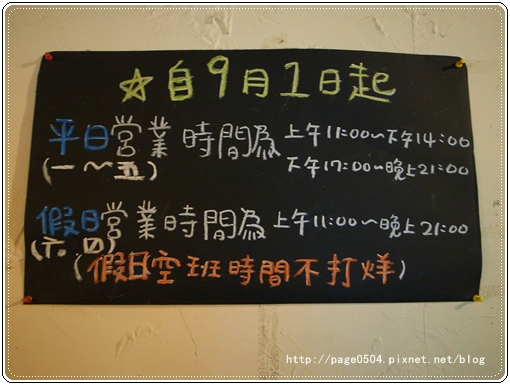 ☆自9月1日起
平日營業時間為 上午11:00~下午14:00
(一~五) 下午17:00~晚上21:00
假日營業時間為 上午11:00~晚上21:00
(六.四)
(假日空班時間不打烊)
http://page0504.pixnet.net/blog